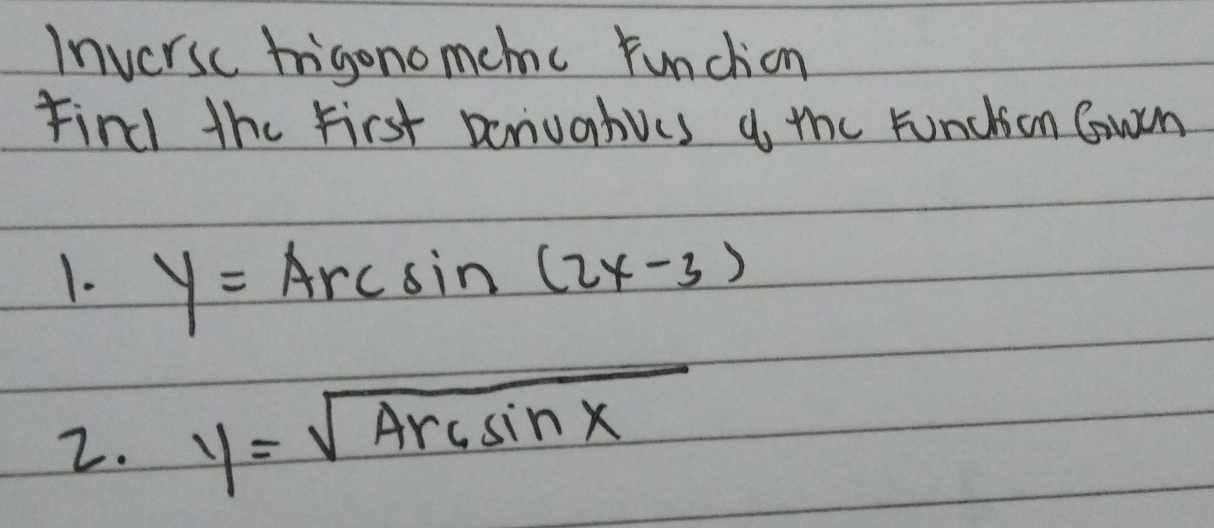 Inverse trigonometric Function
Find the First Derivatives of the Function Given
1. y = Arcsin (2x-3)
2. y = √Arcsin x